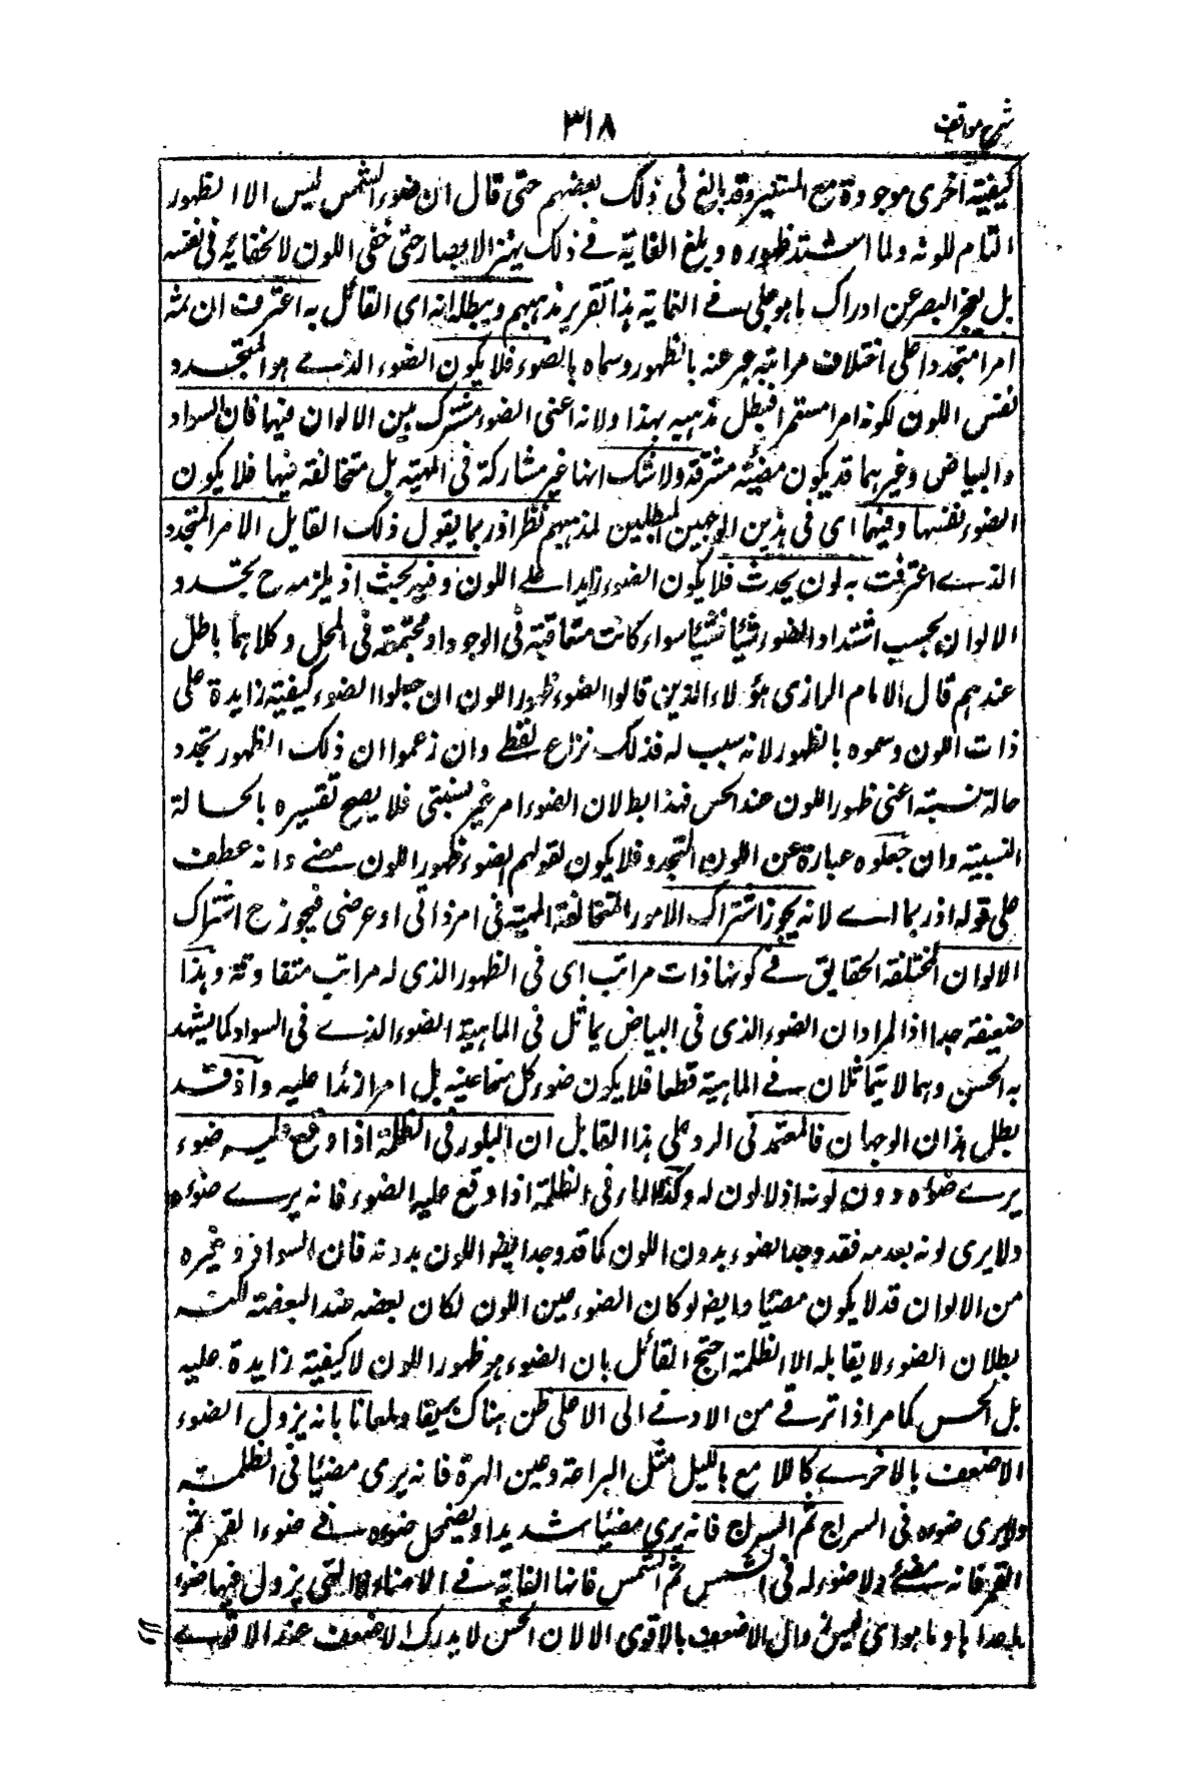 شرح مواقف
٣١٨
كيفية اخرى موجودة مع المستنير وقد بالغ فى ذلك بعضهم حتى قال ان ضوء الشمس ليس الا الظهور
التام للونه ولما اشتد ظهوره وبلغ الغاية فے ذلك يبهر الابصار حتى خفى اللون لا لخفائه فى نفسه
بل لعجز البصر عن ادراك ما هو جلى فے الغاية هذا تقرير مذهبهم ويبطله انه اى القائل به اعترف ان ثمه
امرا متجددا على اختلاف مراتبه عبر عنه بالظهور وسماه بالضوء فلا يكون الضوء الذے هو المتجدد
نفس اللون لكونه امرا مستمرا فبطل مذهبه بهذا ولانه اعنى الضوء مشترك بين الالوان فيها فان السواد
والبياض وغيرهما قد يكون مضيئة مشرقة ولا شك انها غير مشاركة فى المهية بل متخالفة فيها فلا يكون
الضوء نفسها وفيهما اى فى هذين الوجهين المبطلين لمذهبهم نظر اذ ربما يقول ذلك القايل الامر المتجدد
الذے اعترفت به لون يحدث فلا يكون الضوء زايدا على اللون وفيه بحث اذ يلزمه ح تجدد
الالوان بحسب اشتداد الضوء شيئا فشيئا سواء كانت متعاقبة فى الوجود او مجتمعة فى المحل وكلاهما باطل
عندهم قال الامام الرازى هؤلاء الذين قالوا الضوء ظهور اللون ان جعلوا الضوء كيفية زايدة على
ذات اللون وسموه بالظهور لانه سبب له فذلك نزاع لفظے وان زعموا ان ذلك الظهور تجدد
حالة نسبية اعنى ظهور اللون عند الحس فهذا بطلان الضوء امر غير نسبتى فلا يصح تفسيره بالحالة
النسبية وان جعلوه عبارة عن اللون المتجدد فلا يكون لقولهم الضوء ظهور اللون معنے وانه عطف
على قوله اذ ربما اے لانه يجوز اشتراك الامور المتخالفة المهية فى امر ذاتى او عرضى فيجوز ح اشتراك
الالوان المختلفة الحقايق فے كونها ذات مراتب اى فى الظهور الذى له مراتب متفاوتة وهذا
ضعيفة جدا اذ المراد ان الضوء الذى فى البياض يماثل فى الماهية الضوء الذے فى السواد كما يشهد
به الحس وهما لا يتماثلان فے الماهية قطعا فلا يكون ضوء كل منهما عينه بل امرا زئدا عليه واذ قد
بطل هذان الوجهان فالمعتمد فى الرد على هذا القايل ان البلور فى الظلمة اذا وقع عليه ضوء
يرے ضوءه دون لونه اذ لا لون له وكذا الماء فى الظلمة اذا وقع عليه الضوء فانه يرے ضوءه
ولا يرى لونه لعدمه فقد وجد الضوء بدون اللون كما قد وجد ايضا اللون بدونه فان السواد وغيره
من الالوان قد لا يكون مضيئا وايضا لو كان الضوء عين اللون لكان بعضه ضد البعضه لكنه
بطلان الضوء لا يقابله الا الظلمة احتج القائل بان الضوء هو ظهور اللون لا كيفية زايدة عليه
بل الحس كما مر اذا ترقے من الادنے الى الاعلى ظن هناك بريقا ولمعانا بانه يزول الضوء
الاضعف بالاخرے كاللامع بالليل مثل اليراعة وعين الهرة فانه يرى مضيئا فى الظلمة
ولا يرى ضوءه فى السراج ثم السراج فانه يرى مضيئا شديدا ويضمحل ضوءه فے ضوء القمر ثم
القمر فانه مضئے ولا ضوء له فى الشمس ثم الشمس فانها الغاية فے الاضاءة التى يزول فيها ضوء
ما عداها وما هو اى ليس زوال الاضعف بالاقوى الا لان الحس لا يدرك الاضعف عند الاقوے